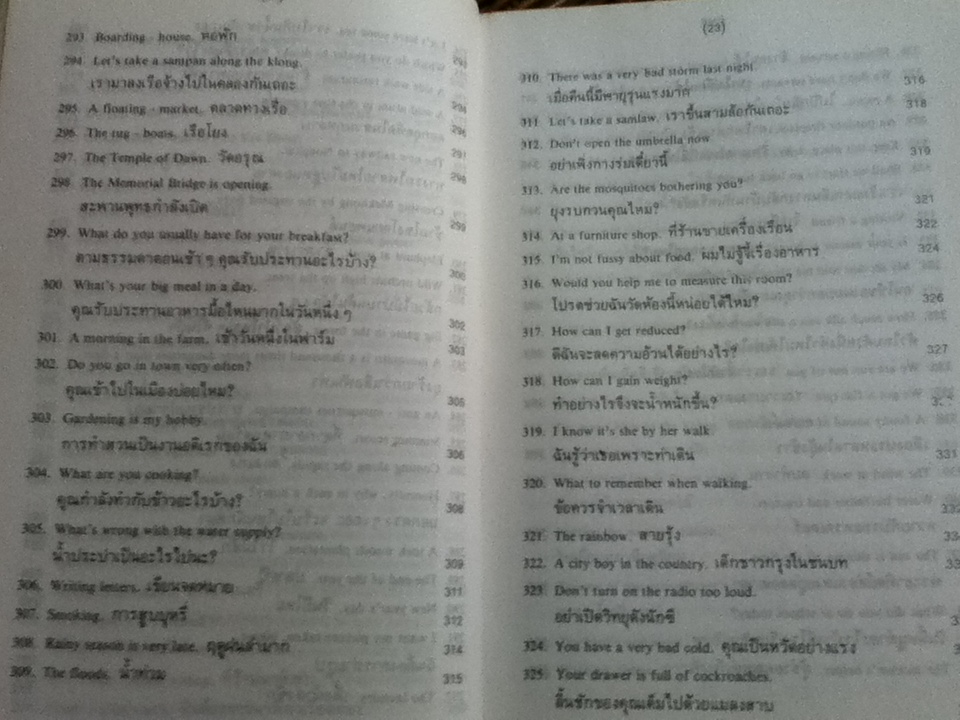 293. Boarding - house. หอพัก
294. Let's take a sampan along the klong.
เรามาลงเรือจ้างไปในคลองกันเถอะ 294
295. A floating - market. ตลาดทางเรือ
296. The tug - boats. เรือโยง
297. The Temple of Dawn. วัดอรุณ
298. The Memorial Bridge is opening.
สะพานพุทธกำลังเปิด 299
299. What do you usually have for your breakfast?
ตามธรรมดาตอนเช้า ๆ คุณรับประทานอะไรบ้าง? 300
300. What's your big meal in a day.
คุณรับประทานอาหารมื้อไหนมากในวันหนึ่ง ๆ 302
301. A morning in the farm. เช้าวันหนึ่งในฟาร์ม 303
302. Do you go in town very often?
คุณเข้าไปในเมืองบ่อยไหม? 305
303. Gardening is my hobby.
การทำสวนเป็นงานอดิเรกของฉัน 306
304. What are you cooking?
คุณกำลังทำกับข้าวอะไรบ้าง? 308
305. What's wrong with the water supply?
น้ำประปาเป็นอะไรไปนะ? 309
306. Writing letters. เขียนจดหมาย 311
307. Smoking. การสูบบุหรี่ 312
308. Rainy season is very late. ฤดูฝนล่ามาก 314
309. The floods. น้ำท่วม 315
(23)
310. There was a very bad storm last night.
เมื่อคืนนี้มีพายุรุนแรงมาก 316
311. Let's take a samlaw. เราขึ้นสามล้อกันเถอะ 318
312. Don't open the umbrella now
อย่าเพิ่งกางร่มเดี๋ยวนี้ 319
313. Are the mosquitoes bothering you?
ยุงรบกวนคุณไหม? 321
314. At a furniture shop. ที่ร้านขายเครื่องเรือน 322
315. I'm not fussy about food. ผมไม่จู้จี้เรื่องอาหาร 324
316. Would you help me to measure this room?
โปรดช่วยฉันวัดห้องนี้หน่อยได้ไหม? 326
317. How can I get reduced?
ดิฉันจะลดความอ้วนได้อย่างไร? 327
318. How can I gain weight?
ทำอย่างไรจึงจะน้ำหนักขึ้น?
319. I know it's she by her walk.
ฉันรู้ว่าเธอเพราะท่าเดิน 331
320. What to remember when walking.
ข้อควรจำเวลาเดิน
321. The rainbow. สายรุ้ง
322. A city boy in the country. เด็กชาวกรุงในชนบท
323. Don't turn on the radio too loud.
อย่าเปิดวิทยุดังนักซิ
324. You have a very bad cold. คุณเป็นหวัดอย่างแรง
325. Your drawer is full of cockroaches.
ลิ้นชักของคุณเต็มไปด้วยแมลงสาบ